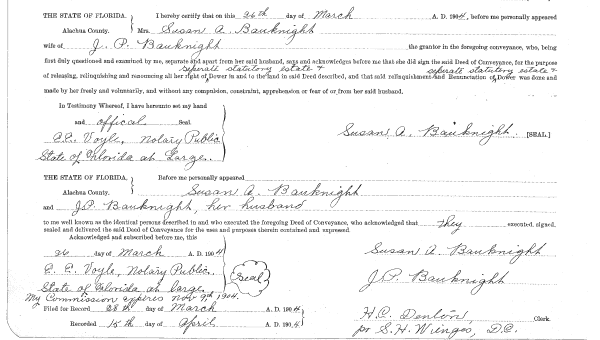 THE STATE OF FLORIDA, } I hereby certify that on this 26th day of March A. D. 1904, before me personally appeared
Alachua County. Mrs. Susan A. Bauknight
wife of J. P. Bauknight the grantor in the foregoing conveyance, who, being
first duly questioned and examined by me, separate and apart from her said husband, says and acknowledges before me that she did sign the said Deed of Conveyance, for the purpose
separate statutory estate & separate statutory estate &
of releasing, relinquishing and renouncing all her right of Dower in and to the land in said Deed described, and that said relinquishment and Renunciation of Dower was done and
made by her freely and voluntarily, and without any compulsion, constraint, apprehension or fear of or from her said husband.
In Testimony Whereof, I have hereunto set my hand
and official Seal
E. E. Voyle, Notary Public
State of Florida at Large.
Susan A. Bauknight. [SEAL]
THE STATE OF FLORIDA, } Before me personally appeared
Alachua County. Susan A. Bauknight
and J.P. Bauknight, her husband
to me well known as the identical persons described in and who executed the foregoing Deed of Conveyance, who acknowledged that they executed, signed,
sealed and delivered the said Deed of Conveyance for the uses and purposes therein contained and expressed.
Acknowledged and subscribed before me, this
26 day of March A. D. 1904
E. E. Voyle, Notary Public.
State of Florida at large.
My Commission expires Nov 9th 1904.
Seal
Susan A. Bauknight
J.P. Bauknight
Filed for Record 28th day of March A. D. 1904
Recorded 15th day of April A. D. 1904
H.C. Denton, Clerk.
pr S.H. Wienges, D.C.